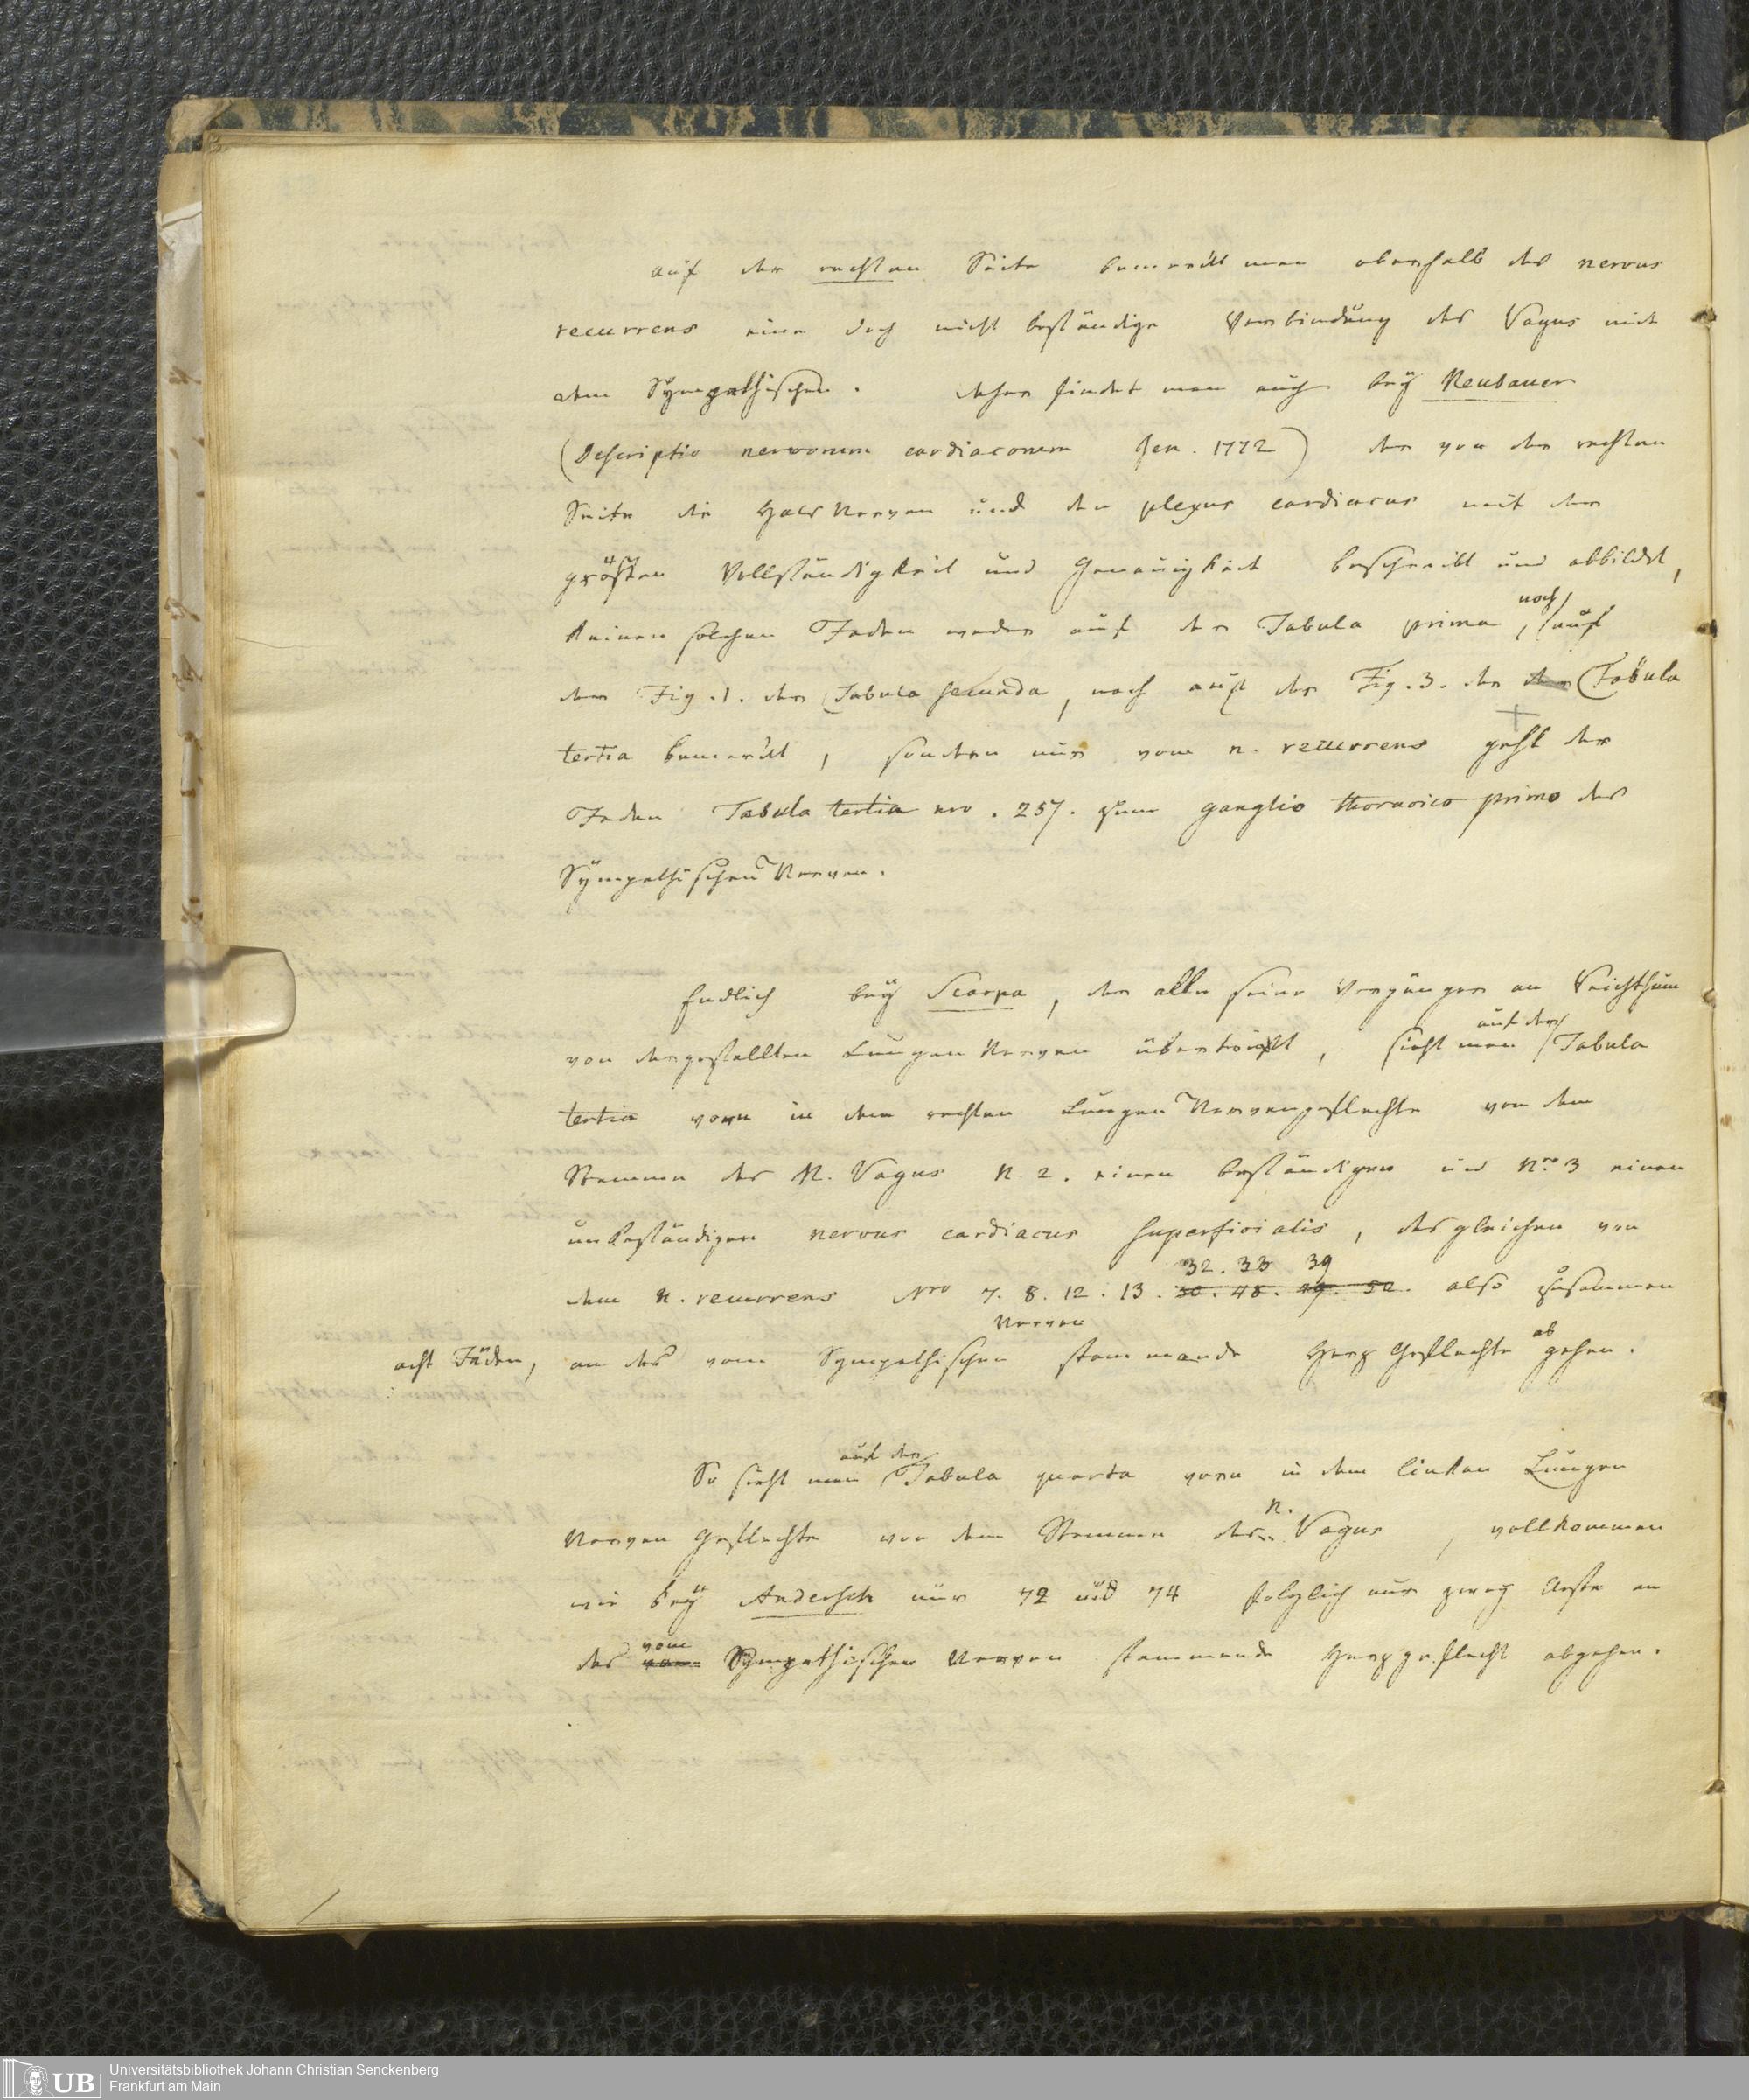 auf der rechten Seite bemerkt man oberhalb des nervus
recurrens eine doch nicht beständige Verbindung des Vagus mit
dem Sympathischen. daher findet man auch beÿ Neubauer
(Descriptio nervorum cardiacorum Jen. 1772) der von der rechten
Seite die Hals Nerven und den plexus cardiacus mit der
größten Vollständigkeit und Genauigkeit beschreibt und abbildet,
keinen solchen Faden weder auf der Tabula prima, noch auf
der Fig. 1. der Tabula secunda, noch auf der Fig. 3. der der Tabula
tertia bemerkt, sondern nur vom n. recurrens geht der
Faden Tabula tertia nro. 257. zum ganglio thoracico primo des
Sÿmpathischen Nerven.
Endlich beÿ Scarpa, der alle seine Vorgänger an Reichthum
von dargestellten Lungen Nerven übertrift, sieht man auf der Tabula
tertia vorn in dem rechten Lungen Nervengeflechte von dem
Stamme des N. Vagus N. 2. einen beständigen und Nro 3 einen
unbeständigen nervus cardiacus superficialis, desgleichen von
32. 33 39
dem N. recurrens Nro 7. 8. 12. 13. 30. 48. 49. 50. also zusammen
acht Fäden, an das vom Sympathischen Nerven stammende Herz Geflechte abgehen.
So sieht man auf der Tabula quarta vorn in dem linken Lungen
Nerven Geflechte von dem Stamme des N. Vagus, vollkommen
wie beÿ Andersch nur 72 und 74 folglich nur zweÿ Aeste an
das vom Sÿmpathischen Nerven stammende Herzgeflecht abgehen.
UB Universitätsbibliothek Johann Christian Senckenberg
Frankfurt am Main